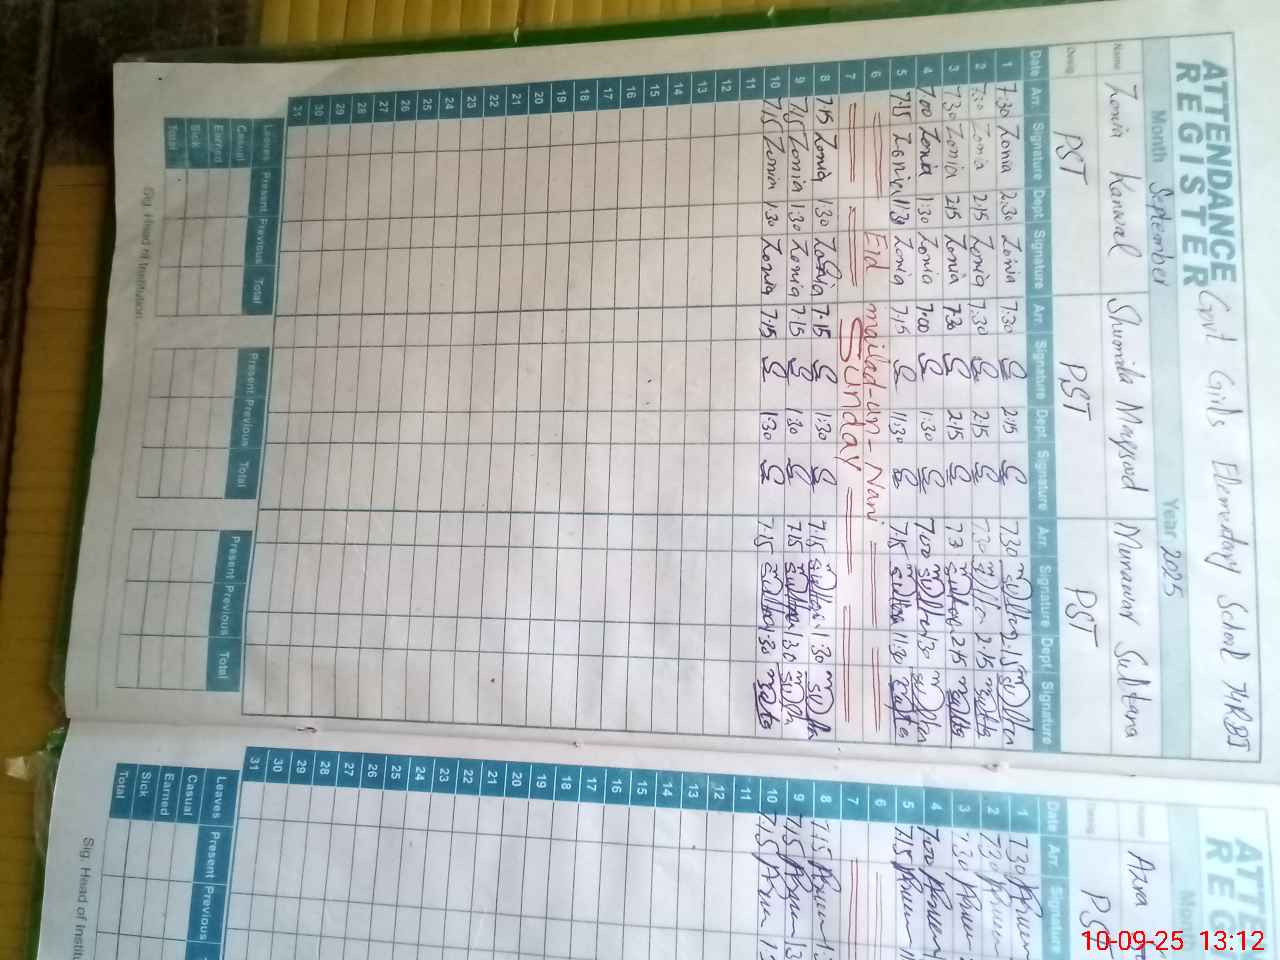 ATTENDANCE REGISTER
Govt Girls Elementary School 74RBI
Month September Year 2025
Name Zonia Kanwal Shumila Maqsood Munawar Sultana
PST PST PST
Date Arr. Signature Dept. Signature Arr. Signature Dept. Signature Arr. Signature Dept. Signature
1 7:30 Zonia 2:30 Zonia 7:30 2:15 7:30 2:15
2 7:30 Zonia 2:15 Zonia 7:30 2:15 7:30 2:15
3 7:30 Zonia 2:15 Zonia 7:30 2:15 7:3 2:15
4 7:00 Zonia 1:30 Zonia 7:00 1:30 7:00 1:30
5 7:15 Zonia 11:30 Zonia 7:15 11:30 7:15 11:30
6 Eid mailad-un-Nani
7 Sunday
8 7:15 Zonia 1:30 Zonia 7:15 1:30 7:15 1:30
9 7:15 Zonia 1:30 Zonia 7:15 1:30 7:15 1:30
10 7:15 Zonia 1:30 Zonia 7:15 1:30 7:15 1:30
11
12
13
14
15
16
17
18
19
20
21
22
23
24
25
26
27
28
29
30
31
Leaves Present Previous Total Present Previous Total Present Previous Total
Casual
Earned
Sick
Total
Sig. Head of Institution
ATTEN
REG
Month
Azra
PS
Date Arr. Signature
1 7:30
2 7:30
3 7:30
4 7:00
5 7:15
6
7
8 7:15
9 7:15
10 7:15
11
12
13
14
15
16
17
18
19
20
21
22
23
24
25
26
27
28
29
30
31
Leaves Present Previous
Casual
Earned
Sick
Total
Sig. Head of Institu
10-09-25 13:12